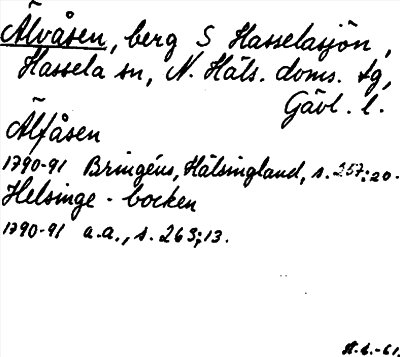 Älvåsen, berg S Hasselasjön,
Hassela sn, N. Häls. doms. tg,
Gävl. l.
Älfåsen
1790-91 Bringéus, Hälsingland, s. 257:20.
Helsinge-bocken
1790-91 a.a., s. 263;13.